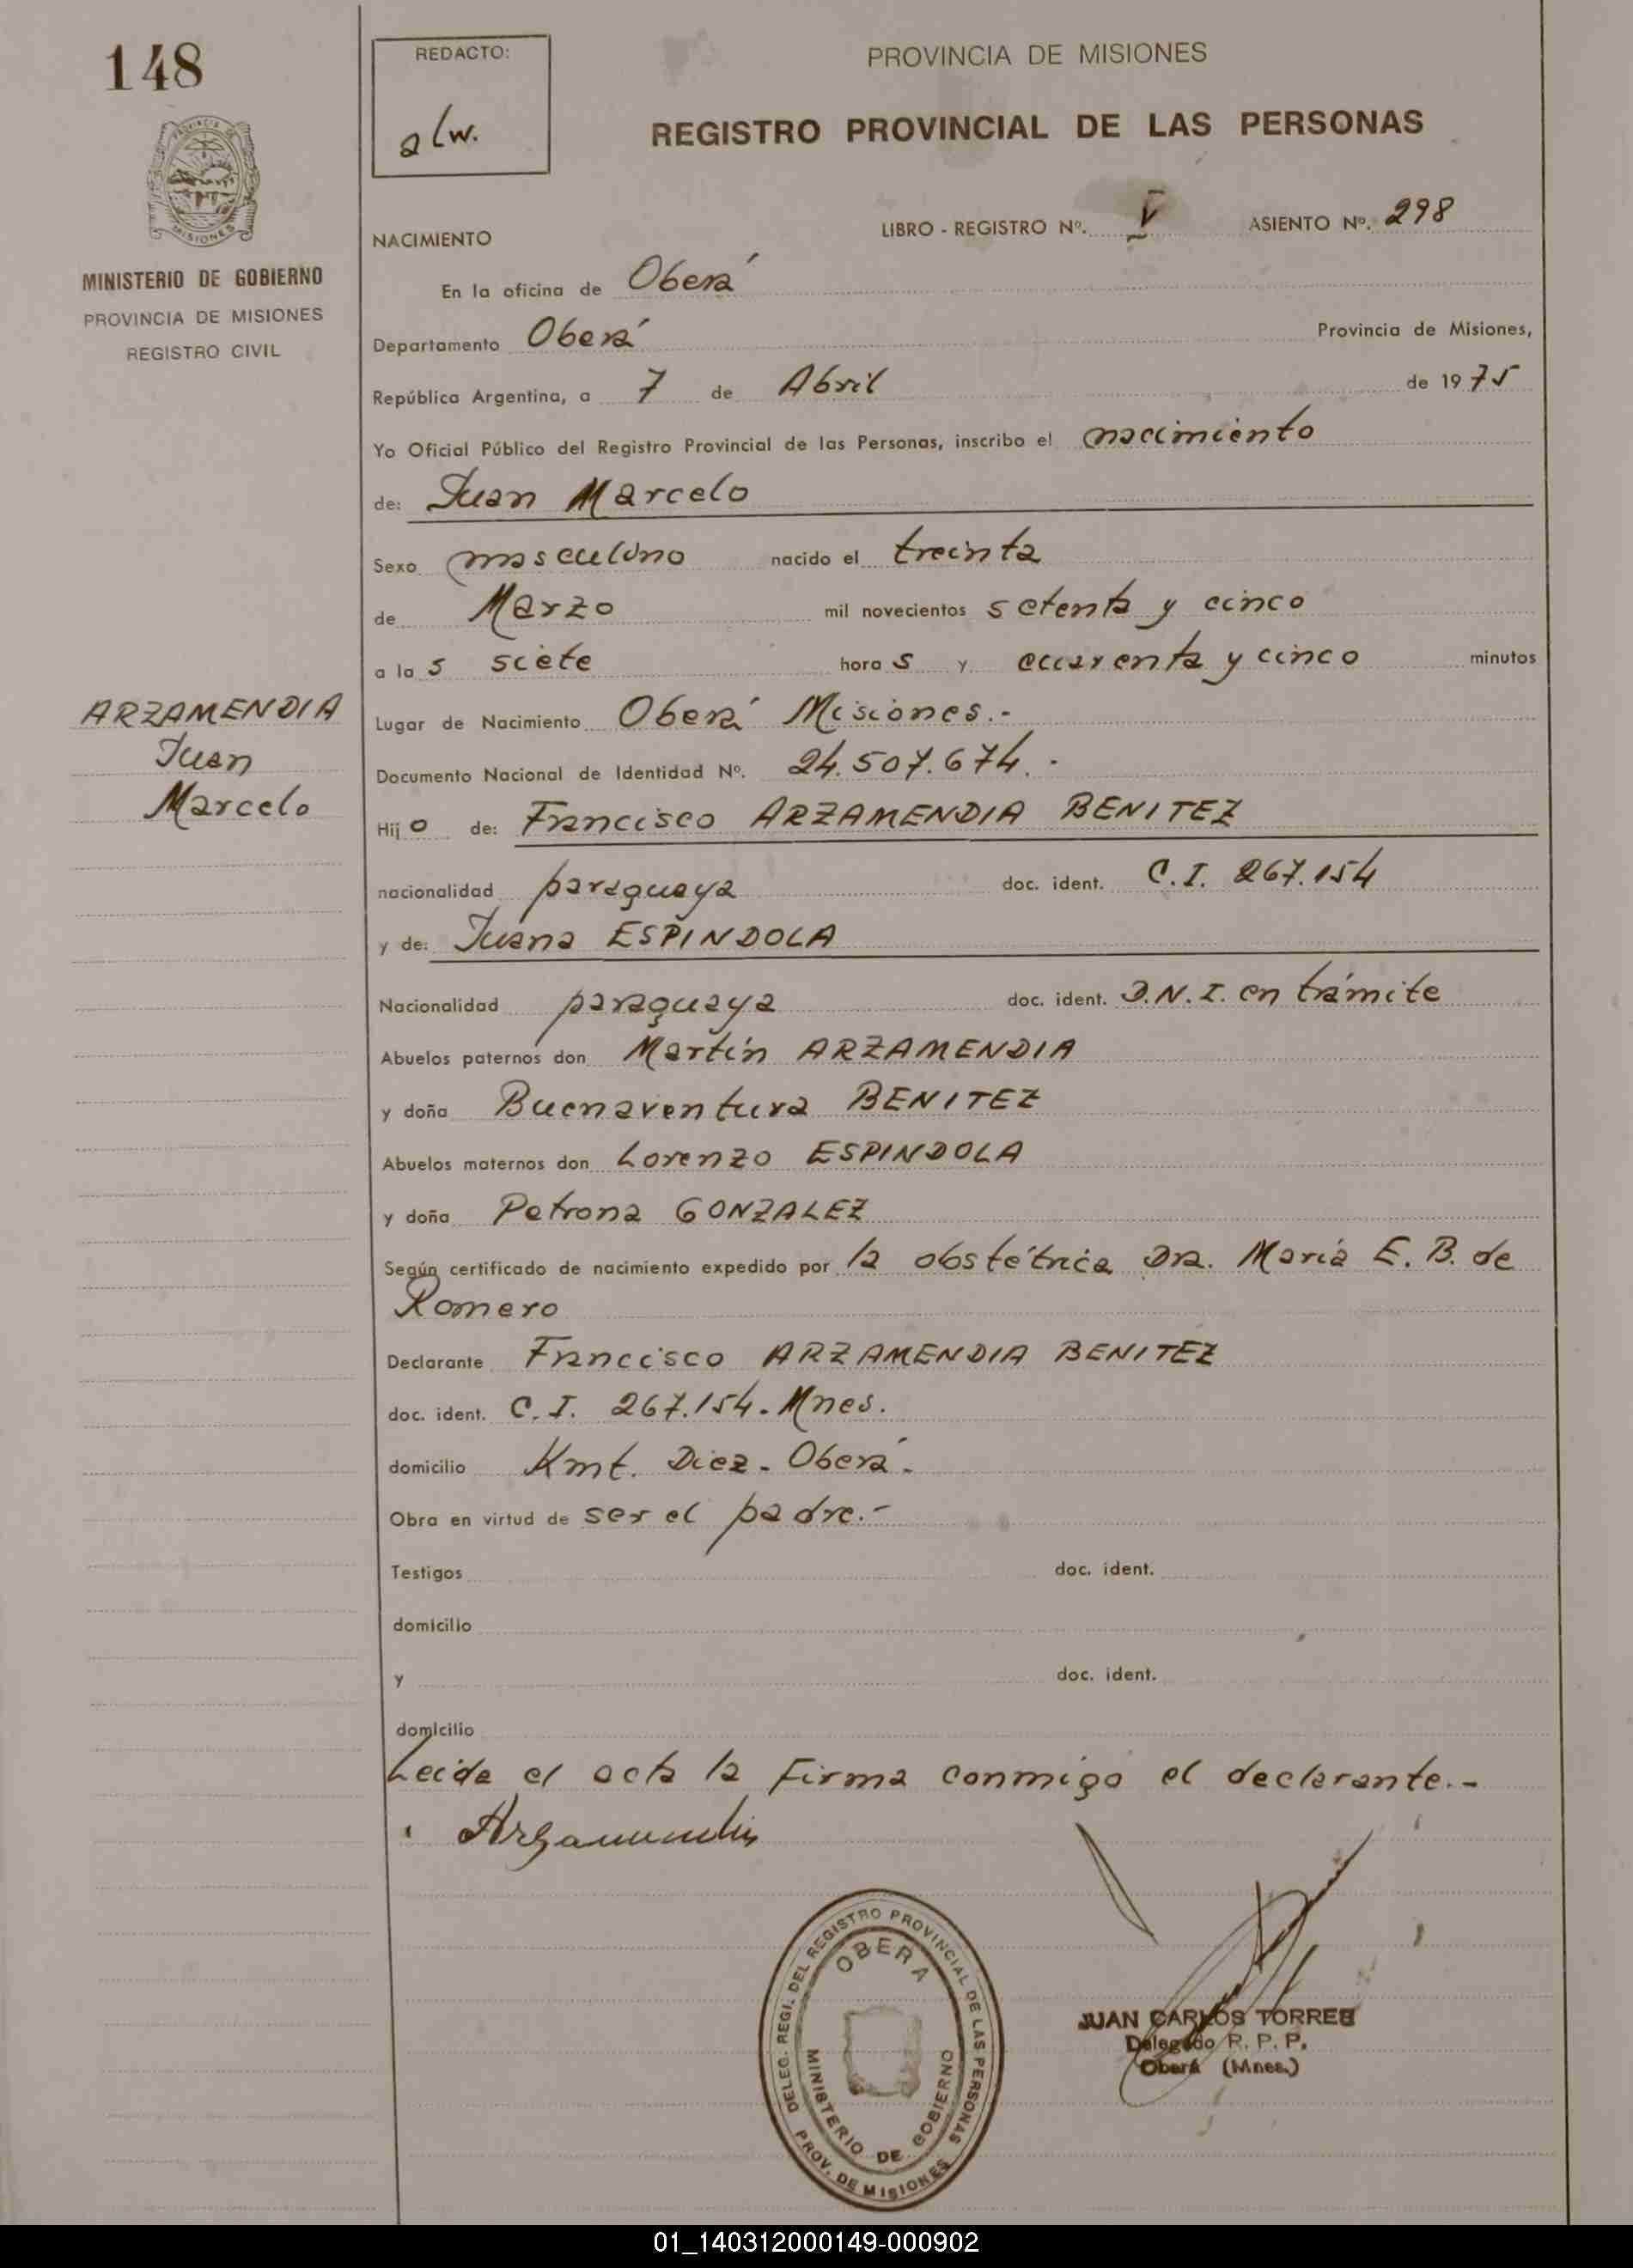 148
REDACTO:
alw.
PROVINCIA DE MISIONES
REGISTRO PROVINCIAL DE LAS PERSONAS
MISIONES
MINISTERIO DE GOBIERNO
PROVINCIA DE MISIONES
REGISTRO CIVIL
NACIMIENTO
LIBRO - REGISTRO Nº. V ASIENTO Nº. 298
En la oficina de Oberá
Departamento Oberá Provincia de Misiones,
República Argentina, a 7 de Abril de 1975
Yo Oficial Público del Registro Provincial de las Personas, inscribo el nacimiento
de: Juan Marcelo
Sexo masculino nacido el treinta
de Marzo mil novecientos setenta y cinco
a las siete horas y cuarenta y cinco minutos
ARZAMENDIA
Juan
Marcelo
Lugar de Nacimiento Oberá Misiones.-
Documento Nacional de Identidad Nº. 24.507.674.-
Hijo de: Francisco ARZAMENDIA BENITEZ
nacionalidad paraguaya doc. ident. C.I. 267.154
y de: Juana ESPINDOLA
Nacionalidad paraguaya doc. ident. D.N.I. en trámite
Abuelos paternos don Martín ARZAMENDIA
y doña Buenaventura BENITEZ
Abuelos maternos don Lorenzo ESPINDOLA
y doña Petrona GONZALEZ
Según certificado de nacimiento expedido por la obstétrica Dra. María E. B. de
Romero
Declarante Francisco ARZAMENDIA BENITEZ
doc. ident. C.I. 267.154. Mnes.
domicilio Kmt. Diez - Oberá.
Obra en virtud de ser el padre.-
Testigos doc. ident.
domicilio
y doc. ident.
domicilio
Leida el acta la firma conmigo el declarante.-
Arzamendia
DELEG. REGI. DEL REGISTRO PROVINCIAL DE LAS PERSONAS
OBERA
MINISTERIO DE GOBIERNO
PROV. DE MISIONES
JUAN CARLOS TORRES
Delegado R. P. P.
Oberá (Mnes.)
01_140312000149-000902